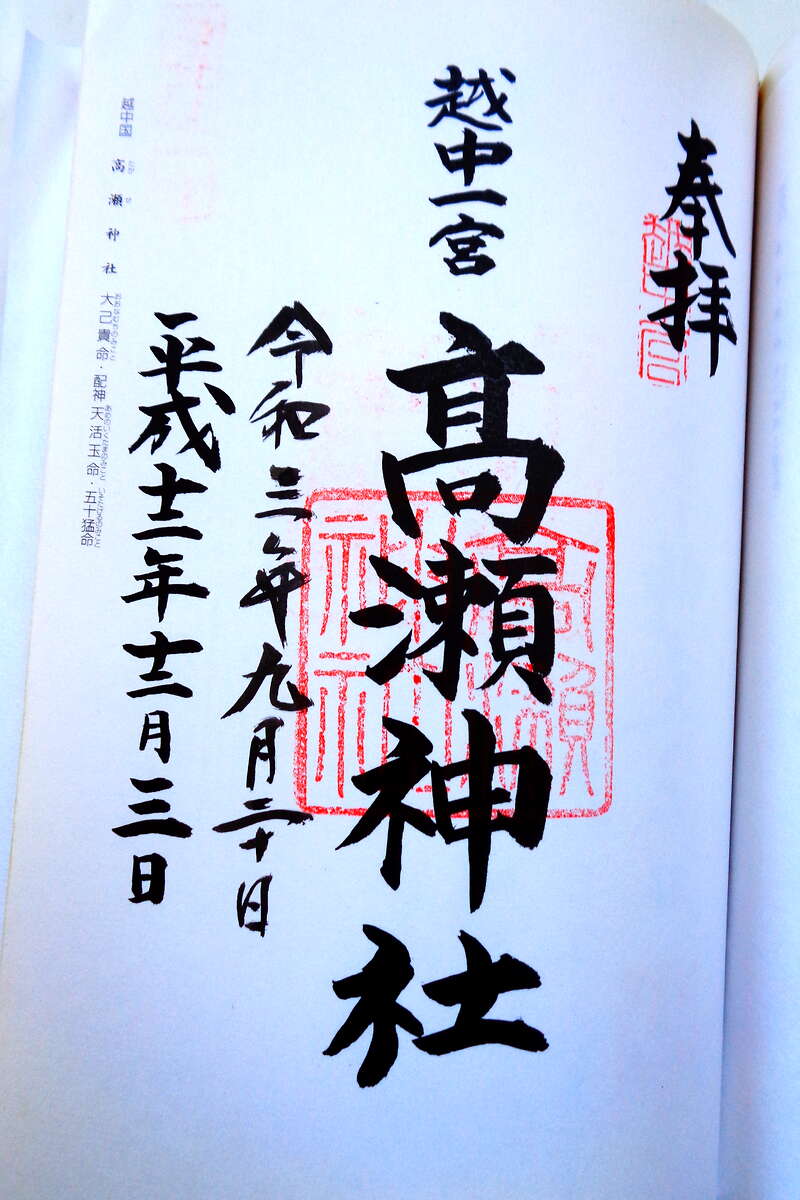 奉拝
越中一宮
髙瀬神社
令和三年九月二十日
平成十二年十二月三日
越中国 高瀬神社 大己貴命・配神天活玉命・五十猛命
高瀬神社